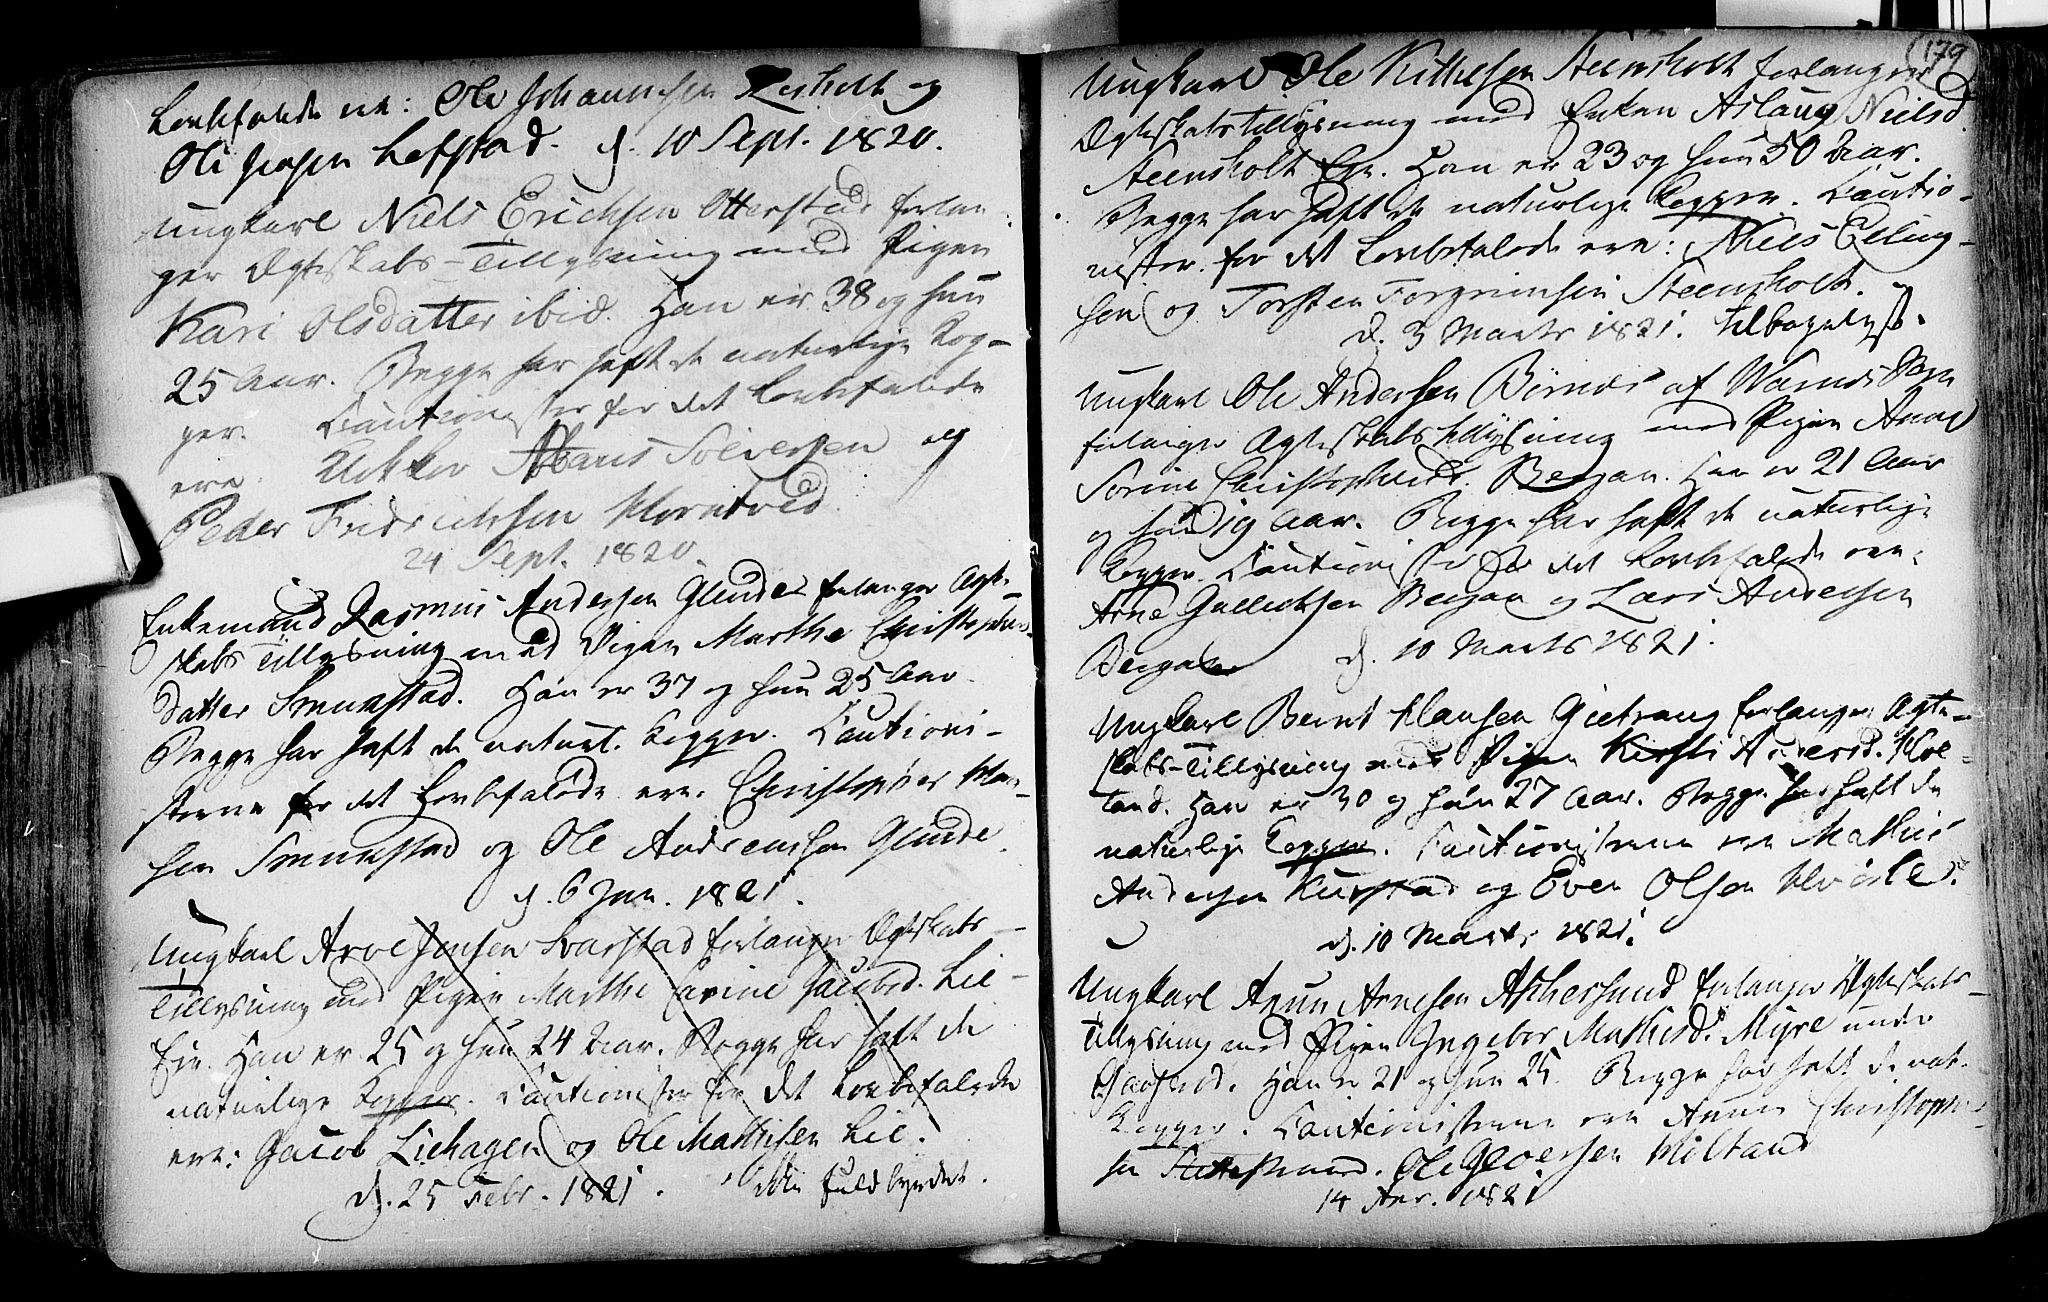 Lovbefalede ere: Ole Johannesen Risholt og
Ole Jensen Lofstad. d. 10 Sept. 1820.
Ungkarl Niels Erichsen Otterstad forlan-
ger Ægteskabs-Tillysning med Pigen
Kari Olsdatter ibid. Han er 38 og hun
25 Aar. Begge har haft de naturlige Kop-
per. Cautionister for det Lovbefalede
ere Hans Solvesen og
Peder Fridrichsen Korntved.
24 Sept. 1820.
Enkemand Rasmus Andersen Glende forlanger Ægte-
skabs Tillysning med Pigen Marthe Christophers-
datter Smunstad. Han er 37 og hun 25 Aar.
Begge har haft de naturl. Kopper. Cautioni-
sterne for det Lovbefalede ere. Christopher Han-
sen Smunstad og Ole Andreassen Glende.
d. 6 Jan. 1821.
Ungkarl Arve Jensen Svarstad forlanger Ægteskabs
Tillysning med Pigen Marthe Carine Jacobsd. Lie-
Eie. Han er 25 og hun 24 Aar. Begge har haft de
naturlige Kopper. Cautionister for det Lovbefalede
ere: Jacob Liehagen og Ole Mathisen Lie.
d. 25 Febr. 1821. ikke fuldbyrdet.
179
Ungkarl Ole Kittelsen Steensholt forlanger
Ægteskabstillysning med Enken Aslaug Nielsd.
Steensholt Eie. Han er 23 og hun 50 Aar.
Begge har haft de naturlige Kopper. Cautio-
nister for det Lovbefalede ere: Niels Elling-
sen og Torsten Torgrimsen Steensholt.
d. 3 Marts 1821. tilbagelyst.
Ungkarl Ole Andersen Bırnes af Warnes Sogn
forlanger Ægteskabs tillysning med Pigen Anne
Sorine Christophersd. Bergan. Han er 21 Aar
og hun 19 Aar. Begge har haft de naturlige
Kopper. Cautionister for det Lovbefalede ere:
Arne Gulliksen Bergan og Lars Andersen
Bergan d. 10 Marts 1821.
Ungkarl Bernt Hansen Gietrang forlanger Ægte-
skabs-Tillysning med Pigen Kirsti Andersd. Hoe-
land. Han er 30 og hun 27 Aar. Begge har haft de
naturlige Kopper. Cautionisterne ere Mathis
Andersen Kurstad og Even Olsen
d. 10 Marts 1821.
Ungkarl Anun Arnesen Askersund forlanger Ægteskabs-
tillysning med Pigen Ingebor Mathisd. Myre under
Gaaserød. Han er 21 og hun 25. Begge har haft de nat.
Kopper. Cautionisterne ere Anun Christophers-
sen Ole Gloersen Militand
14 Apr. 1821